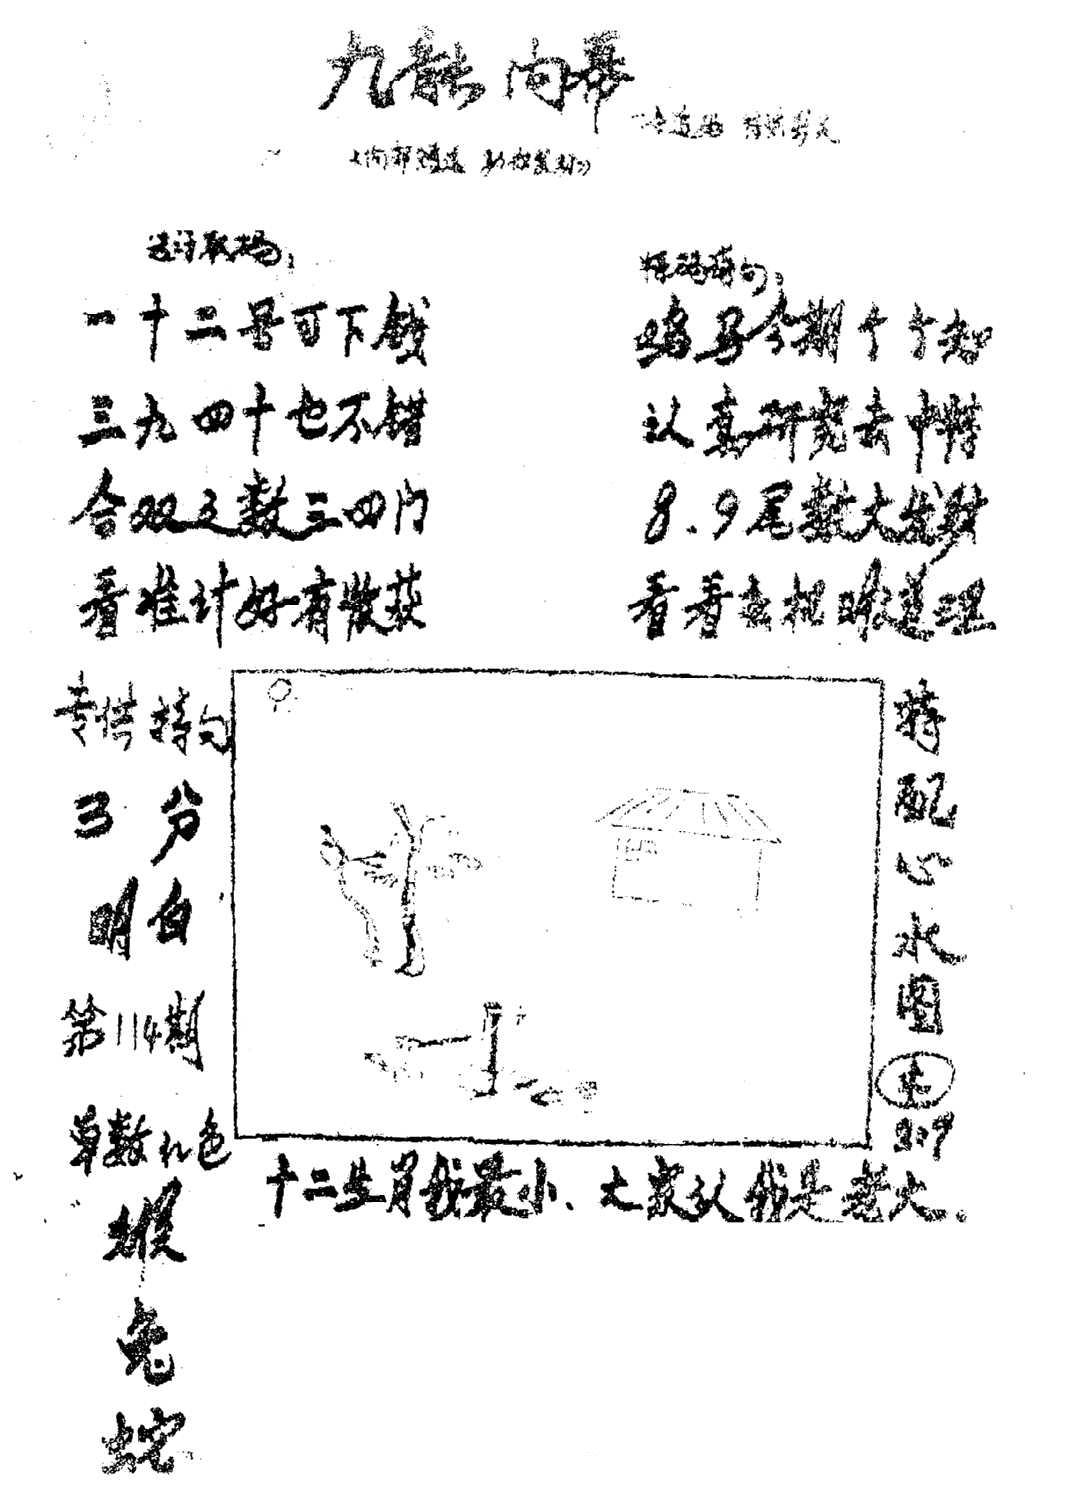 九龍内幕
《内部精选
一十二号可下钱
三九四十也不错
合双之数三四门
看准计好有收获
鸡马今期个个知
认真研究去中特
8.9尾数大发财
看着玄机眼道理
专供特句
3分
明白
第114期
单数红色
猴
兔
蛇
特配心水图
十二生肖我最小、大家认我是老大。